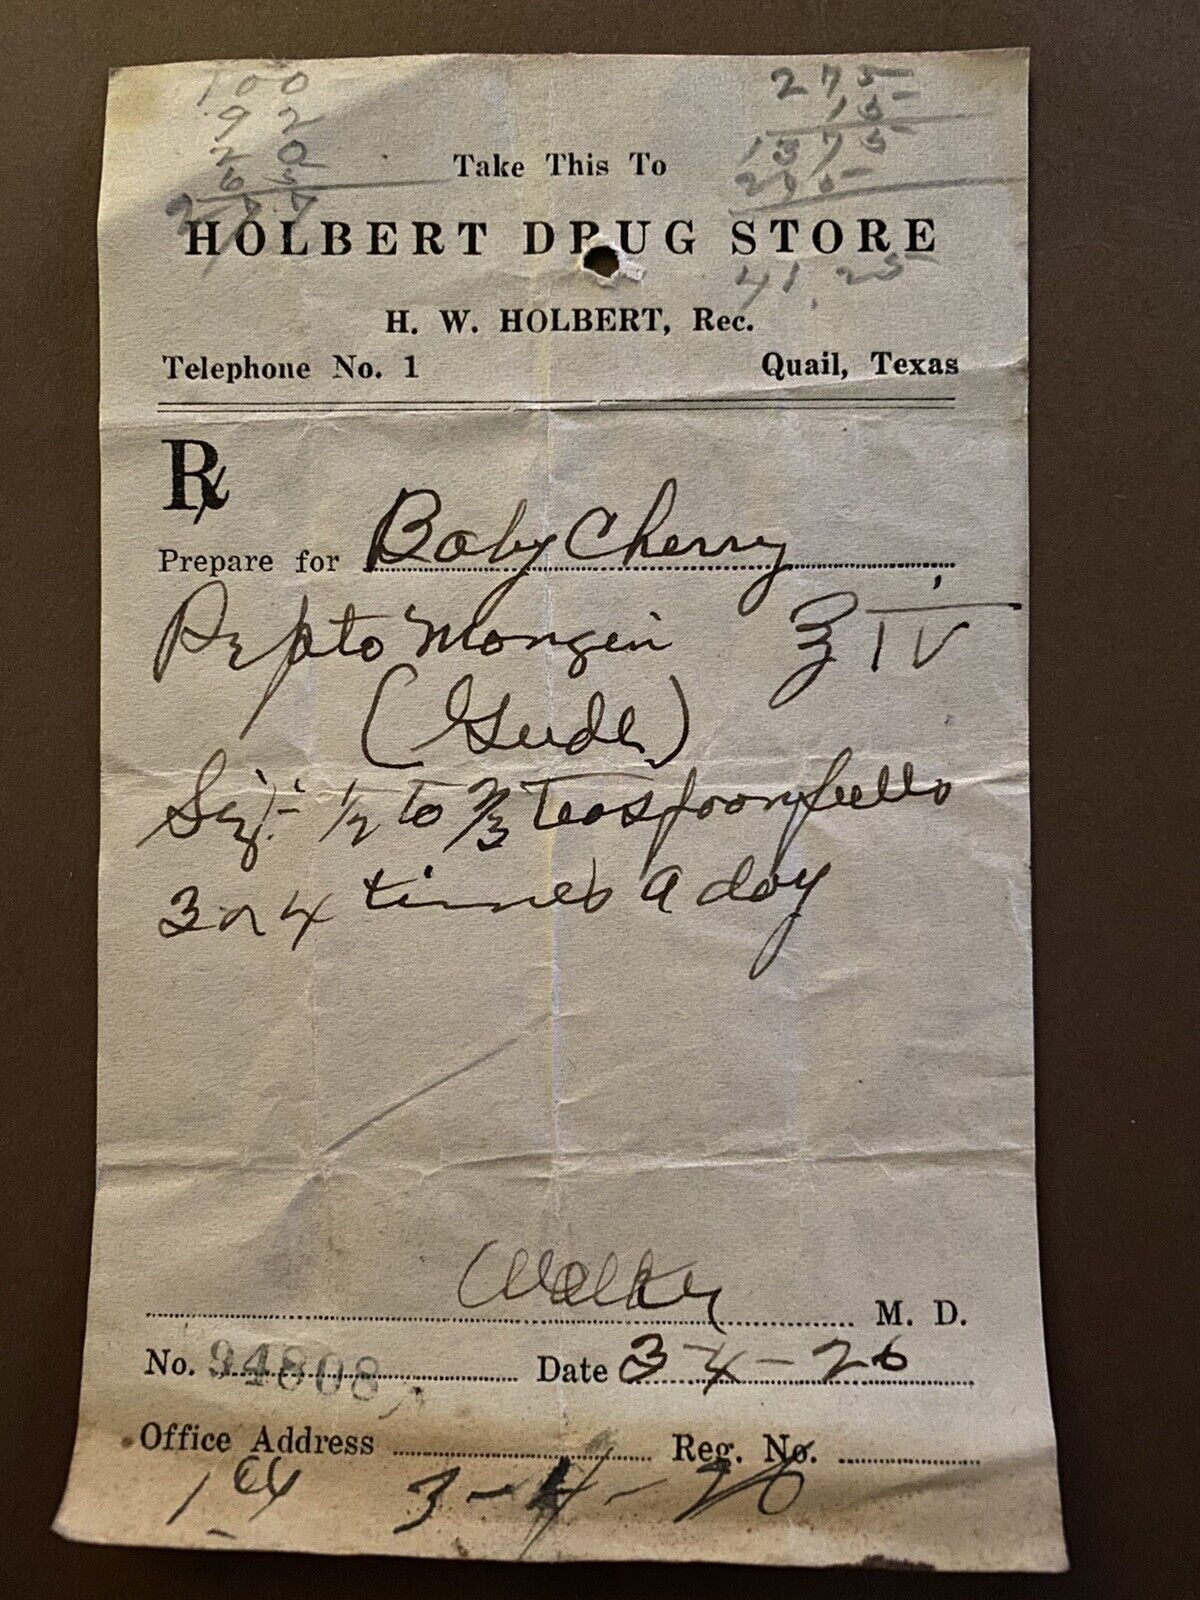 100
92
20
65
277
275
15
1375
275
41.25
Take This To
HOLBERT DRUG STORE
H. W. HOLBERT, Rec.
Telephone No. 1 Quail, Texas
Rx
Prepare for Baby Cherry
Pepto Mangin ℥ IV
(Gude)
Sig:- 1/2 to 2/3 teaspoonfulls
3 or 4 times a day
Walker M. D.
No. 94808 Date 3-4-26
Office Address Reg. No.
3-4-26